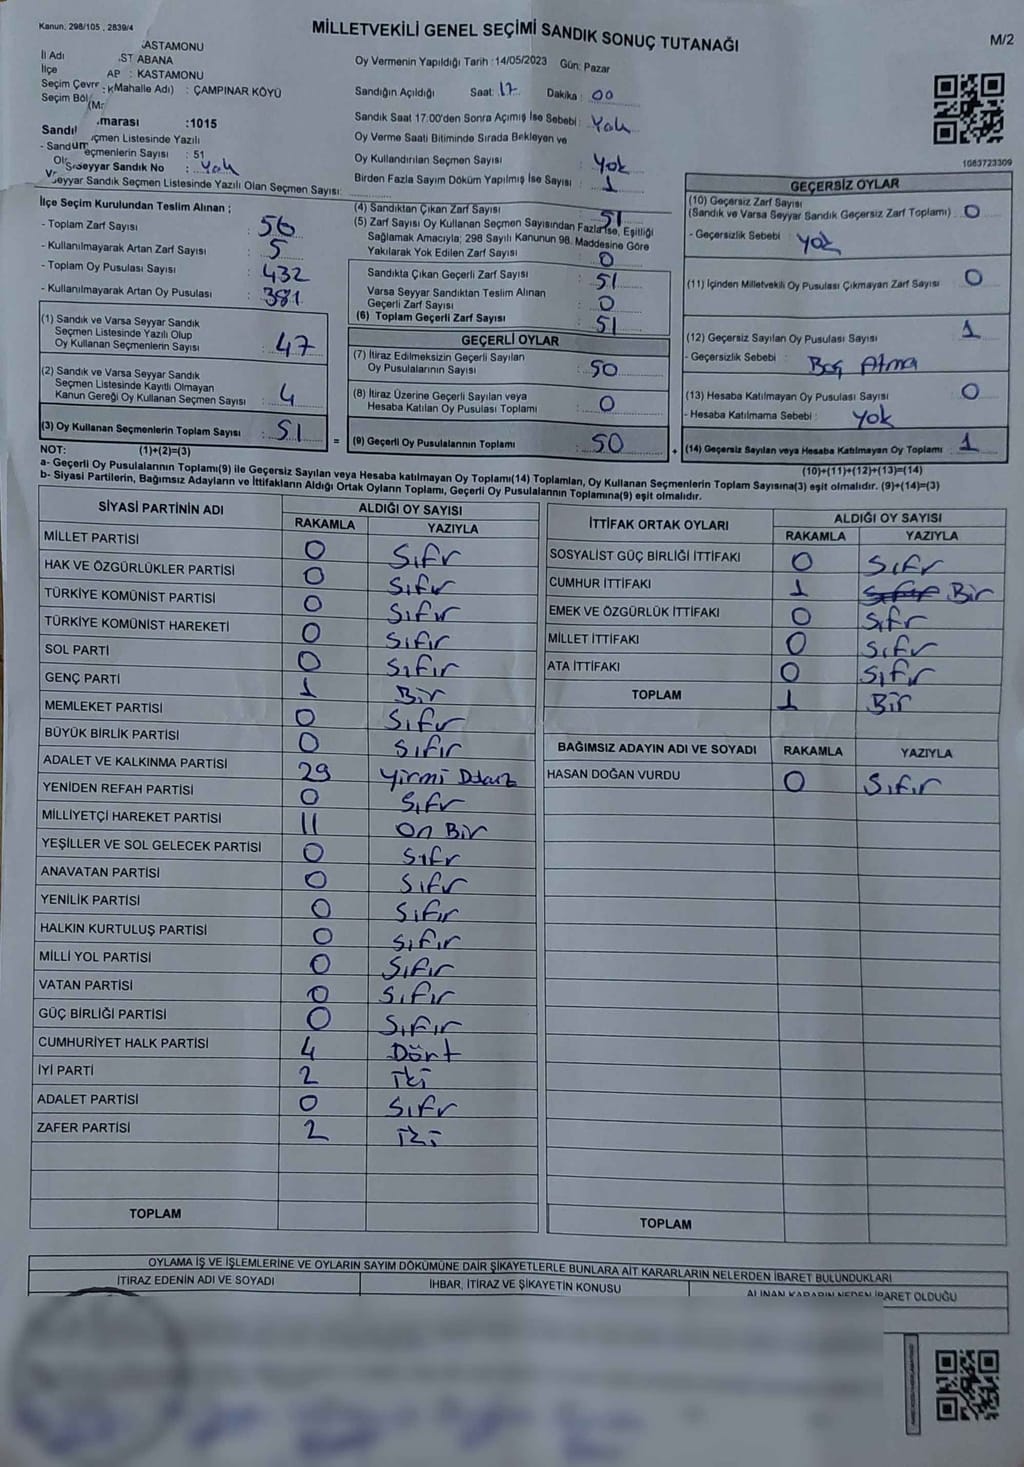 Kanun: 298/105 , 2839/4
MİLLETVEKİLİ GENEL SEÇİMİ SANDIK SONUÇ TUTANAĞI
M/2
İl Adı KASTAMONU
İlçe ABANA
Seçim Çevr : KASTAMONU
Seçim Böl (Mahalle Adı) : ÇAMPINAR KÖYÜ
marası :1015
çmen Listesinde Yazılı
eçmenlerin Sayısı : 51
Seyyar Sandık No : Yok
eyyar Sandık Seçmen Listesinde Yazılı Olan Seçmen Sayısı:
Oy Vermenin Yapıldığı Tarih :14/05/2023 Gün: Pazar
Sandığın Açıldığı Saat: 17 Dakika : 00
Sandık Saat 17:00'den Sonra Açımış İse Sebebi: Yok
Oy Verme Saati Bitiminde Sırada Bekleyen ve
Oy Kullandırılan Seçmen Sayısı : Yok
Birden Fazla Sayım Döküm Yapılmış İse Sayısı : 1
1083723309
İlçe Seçim Kurulundan Teslim Alınan ;
- Toplam Zarf Sayısı : 56
- Kullanılmayarak Artan Zarf Sayısı : 5
- Toplam Oy Pusulası Sayısı : 432
- Kullanılmayarak Artan Oy Pusulası : 381
(1) Sandık ve Varsa Seyyar Sandık
Seçmen Listesinde Yazılı Olup
Oy Kullanan Seçmenlerin Sayısı : 47
(2) Sandık ve Varsa Seyyar Sandık
Seçmen Listesinde Kayıtlı Olmayan
Kanun Gereği Oy Kullanan Seçmen Sayısı : 4
(3) Oy Kullanan Seçmenlerin Toplam Sayısı : 51
(4) Sandıktan Çıkan Zarf Sayısı : 51
(5) Zarf Sayısı Oy Kullanan Seçmen Sayısından Fazla İse, Eşitliği
Sağlamak Amacıyla; 298 Sayılı Kanunun 98. Maddesine Göre
Yakılarak Yok Edilen Zarf Sayısı : 0
Sandıkta Çıkan Geçerli Zarf Sayısı : 51
Varsa Seyyar Sandıktan Teslim Alınan
Geçerli Zarf Sayısı : 0
(6) Toplam Geçerli Zarf Sayısı : 51
GEÇERLİ OYLAR
(7) İtiraz Edilmeksizin Geçerli Sayılan
Oy Pusulalarının Sayısı : 50
(8) İtiraz Üzerine Geçerli Sayılan veya
Hesaba Katılan Oy Pusulası Toplamı : 0
= (9) Geçerli Oy Pusulalarının Toplamı : 50
GEÇERSİZ OYLAR
(10) Geçersiz Zarf Sayısı
(Sandık ve Varsa Seyyar Sandık Geçersiz Zarf Toplamı) : 0
- Geçersizlik Sebebi : Yok
(11) İçinden Milletvekili Oy Pusulası Çıkmayan Zarf Sayısı : 0
(12) Geçersiz Sayılan Oy Pusulası Sayısı : 1
- Geçersizlik Sebebi : Boş Atma
(13) Hesaba Katılmayan Oy Pusulası Sayısı : 0
- Hesaba Katılmama Sebebi : Yok
+ (14) Geçersiz Sayılan veya Hesaba Katılmayan Oy Toplamı : 1
NOT: (1)+(2)=(3)
(10)+(11)+(12)+(13)=(14)
a- Geçerli Oy Pusulalarının Toplamı(9) ile Geçersiz Sayılan veya Hesaba katılmayan Oy Toplamı(14) Toplamları, Oy Kullanan Seçmenlerin Toplam Sayısına(3) eşit olmalıdır. (9)+(14)=(3)
b- Siyasi Partilerin, Bağımsız Adayların ve İttifakların Aldığı Ortak Oyların Toplamı, Geçerli Oy Pusulalarının Toplamına(9) eşit olmalıdır.
SİYASİ PARTİNİN ADI ALDIĞI OY SAYISI
RAKAMLA YAZIYLA
MİLLET PARTİSİ 0 Sıfır
HAK VE ÖZGÜRLÜKLER PARTİSİ 0 Sıfır
TÜRKİYE KOMÜNİST PARTİSİ 0 Sıfır
TÜRKİYE KOMÜNİST HAREKETİ 0 Sıfır
SOL PARTİ 0 Sıfır
GENÇ PARTİ 1 Bir
MEMLEKET PARTİSİ 0 Sıfır
BÜYÜK BİRLİK PARTİSİ 0 Sıfır
ADALET VE KALKINMA PARTİSİ 29 Yirmi Dokuz
YENİDEN REFAH PARTİSİ 0 Sıfır
MİLLİYETÇİ HAREKET PARTİSİ 11 On Bir
YEŞİLLER VE SOL GELECEK PARTİSİ 0 Sıfır
ANAVATAN PARTİSİ 0 Sıfır
YENİLİK PARTİSİ 0 Sıfır
HALKIN KURTULUŞ PARTİSİ 0 Sıfır
MİLLİ YOL PARTİSİ 0 Sıfır
VATAN PARTİSİ 0 Sıfır
GÜÇ BİRLİĞİ PARTİSİ 0 Sıfır
CUMHURİYET HALK PARTİSİ 4 Dört
İYİ PARTİ 2 İki
ADALET PARTİSİ 0 Sıfır
ZAFER PARTİSİ 2 İki
TOPLAM
İTTİFAK ORTAK OYLARI ALDIĞI OY SAYISI
RAKAMLA YAZIYLA
SOSYALİST GÜÇ BİRLİĞİ İTTİFAKI 0 Sıfır
CUMHUR İTTİFAKI 1 Sıfır Bir
EMEK VE ÖZGÜRLÜK İTTİFAKI 0 Sıfır
MİLLET İTTİFAKI 0 Sıfır
ATA İTTİFAKI 0 Sıfır
TOPLAM 1 Bir
BAĞIMSIZ ADAYIN ADI VE SOYADI RAKAMLA YAZIYLA
HASAN DOĞAN VURDU 0 Sıfır
TOPLAM
OYLAMA İŞ VE İŞLEMLERİNE VE OYLARIN SAYIM DÖKÜMÜNE DAİR ŞİKAYETLERLE BUNLARA AİT KARARLARIN NELERDEN İBARET BULUNDUKLARI
İTİRAZ EDENİN ADI VE SOYADI İHBAR, İTİRAZ VE ŞİKAYETİN KONUSU ALINAN KARARIN NEDEN İBARET OLDUĞU